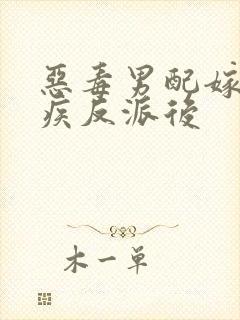 惡毒男配嫁
疾反派後
木一單